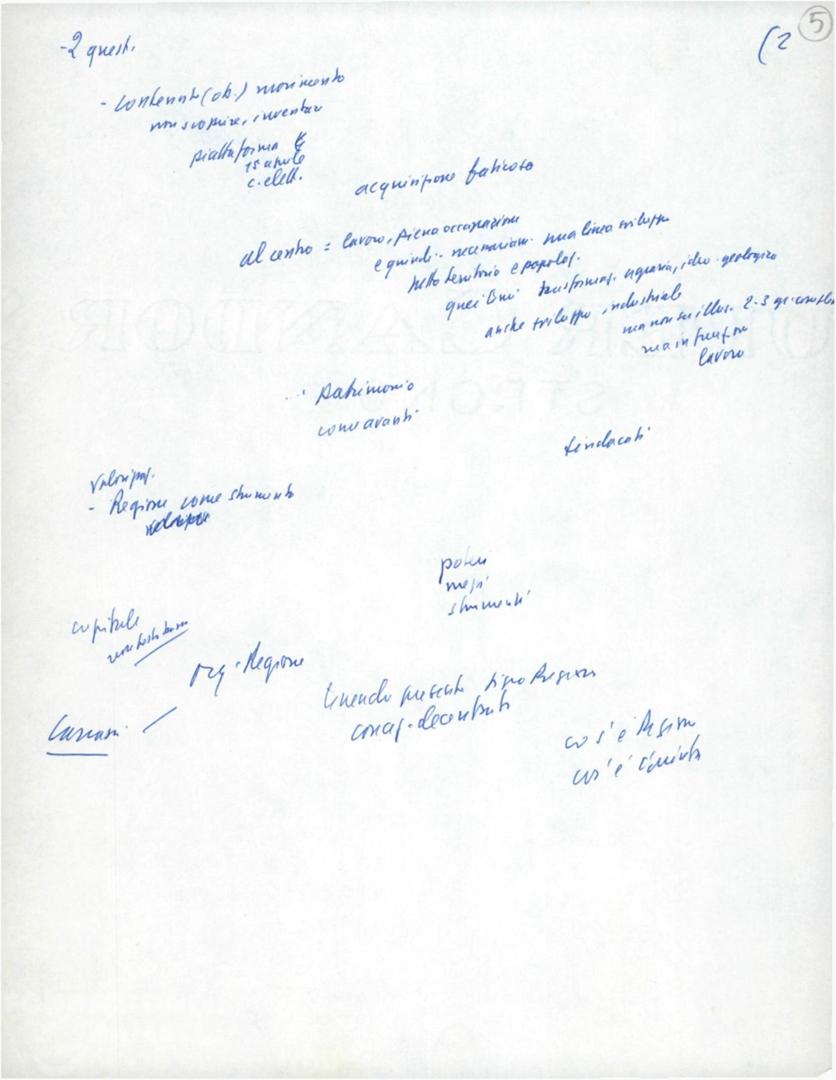 (2 5
-2 quest.
- Contenuto (ob.) movimento
non scoprire, inventar
piattaforma
15 aprile
c. elett.
acquisizione faticosa
al centro = lavoro, piena occupazione
e quindi - necessariam. una linea sviluppo
nello territorio e popolaz.
quei trasformaz. agraria, idro-geologica
anche sviluppo industriale
ma non su illus. 2-3 gr.
ma in funzion
lavoro
patrimonio
come avanti
sindacati
Valorizzaz.
- Regione come strumento
poteri
mezzi
strumenti
capitale
org. Regione
tenendo presente tipo Region
concez. decentrata
cos'è Regione
cos'è